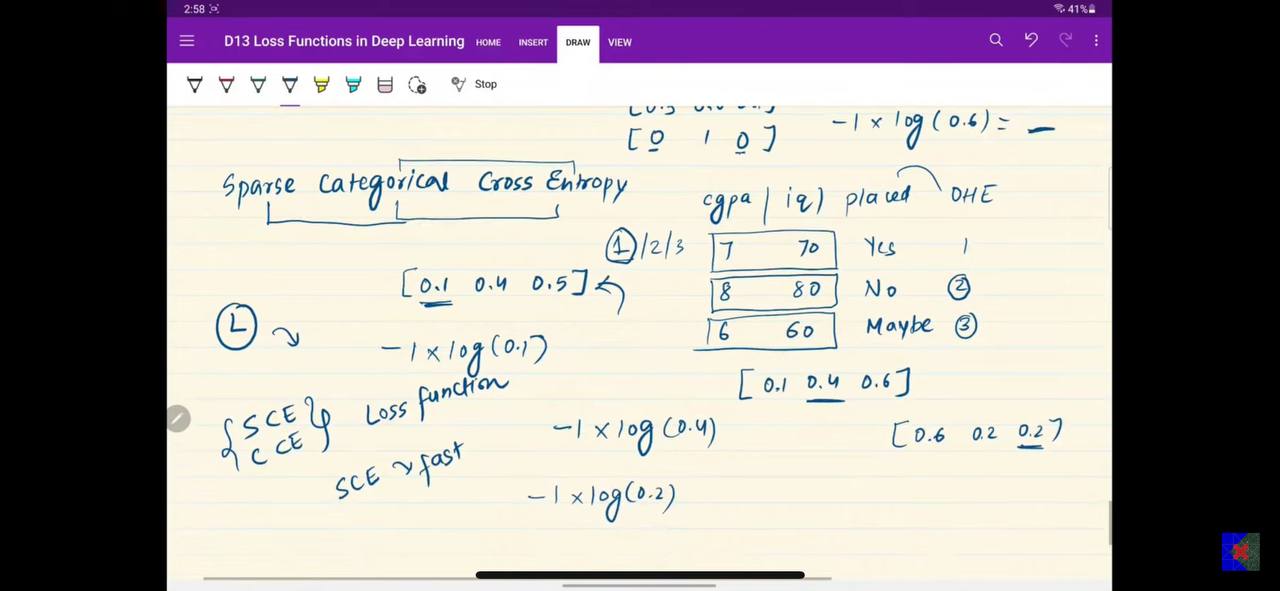 2:58 41%
D13 Loss Functions in Deep Learning HOME INSERT DRAW VIEW
Stop
[0 1 0] -1 × log(0.6) = _
Sparse Categorical Cross Entropy
cgpa | iq | placed OHE
1/2/3 7 70 Yes 1
[0.1 0.4 0.5] 8 80 No 2
L 6 60 Maybe 3
-1 × log(0.1)
[0.1 0.4 0.6]
{SCE Loss function
CCE}
-1 × log(0.4) [0.6 0.2 0.2]
SCE fast
-1 × log(0.2)